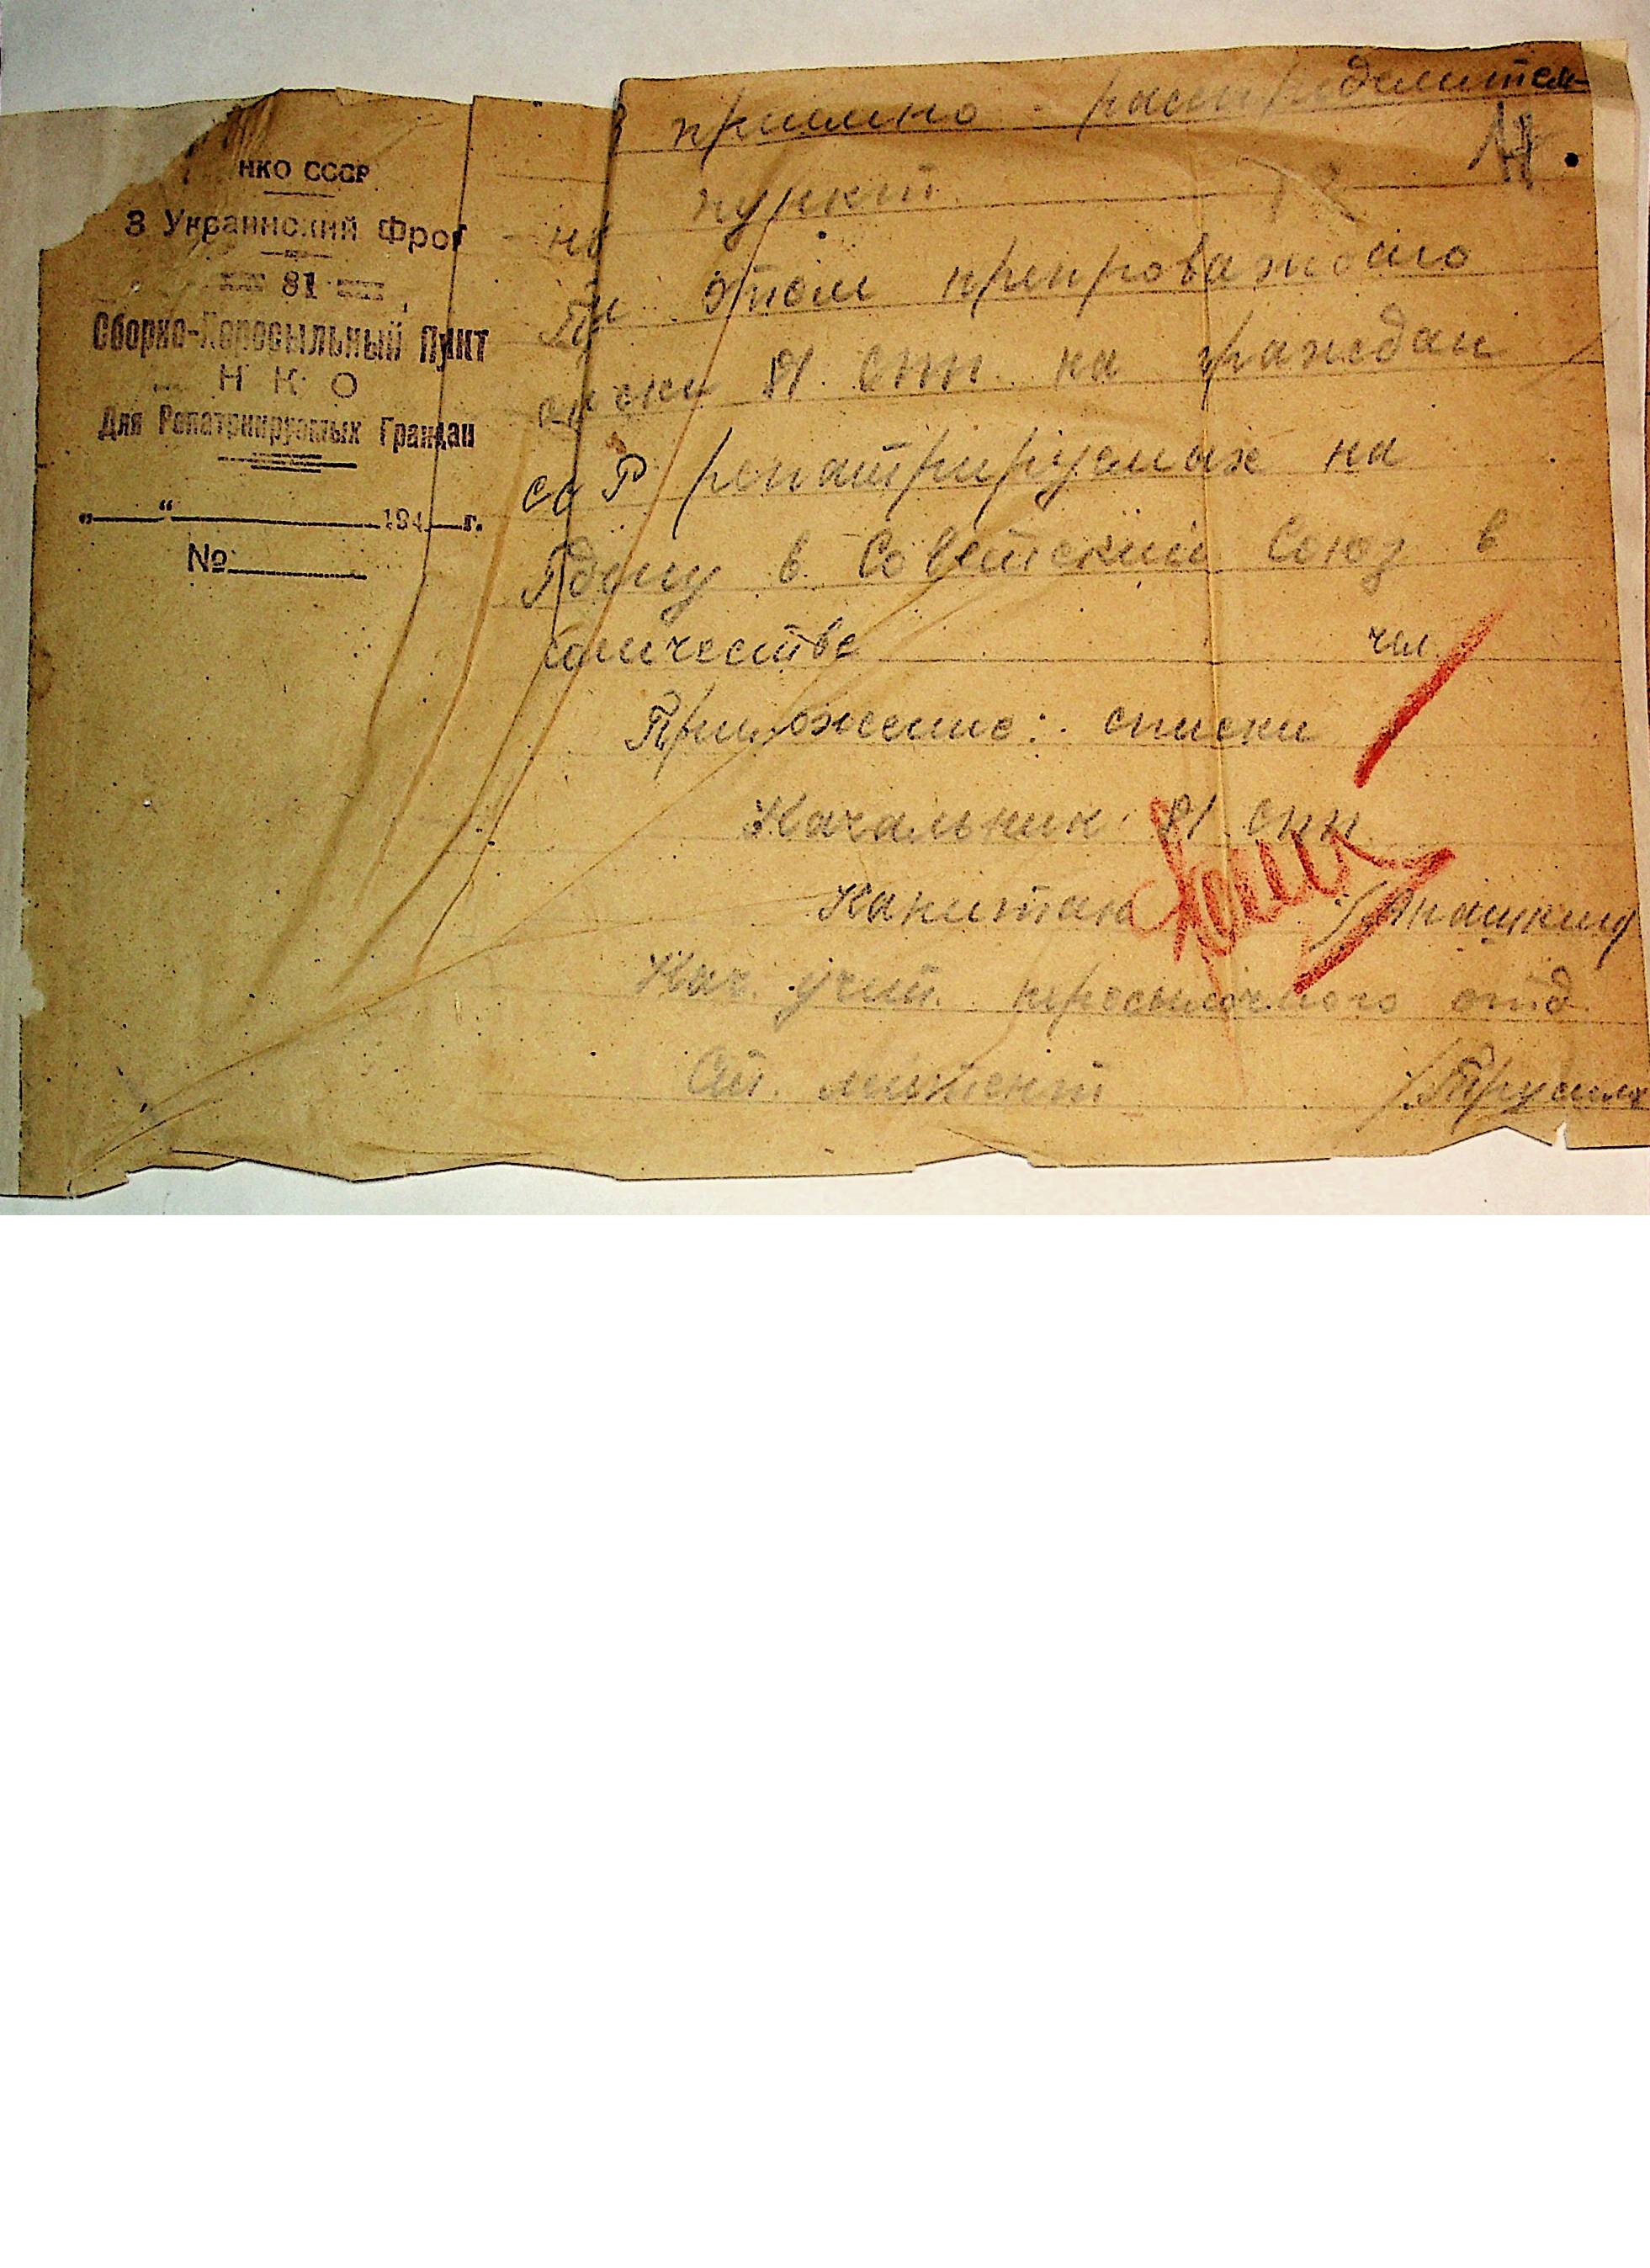 НКО СССР
3 Украинский Фро
81
Сборно-Пересыльный Пункт
Н К О
Для Репатриируемых Граждан
„ “ 194 г.
№
приемно - распределител
пункт.
При этом препроважаю
списки 81 СПП на граждан
СССР репатриируемых на
Родину в Советский Союз в
количестве чел.
Приложение: списки
Начальник 81 спп
Капитан /Апашкин/
Нач. учетн. пересылочного отд.
Ст. лейтенант